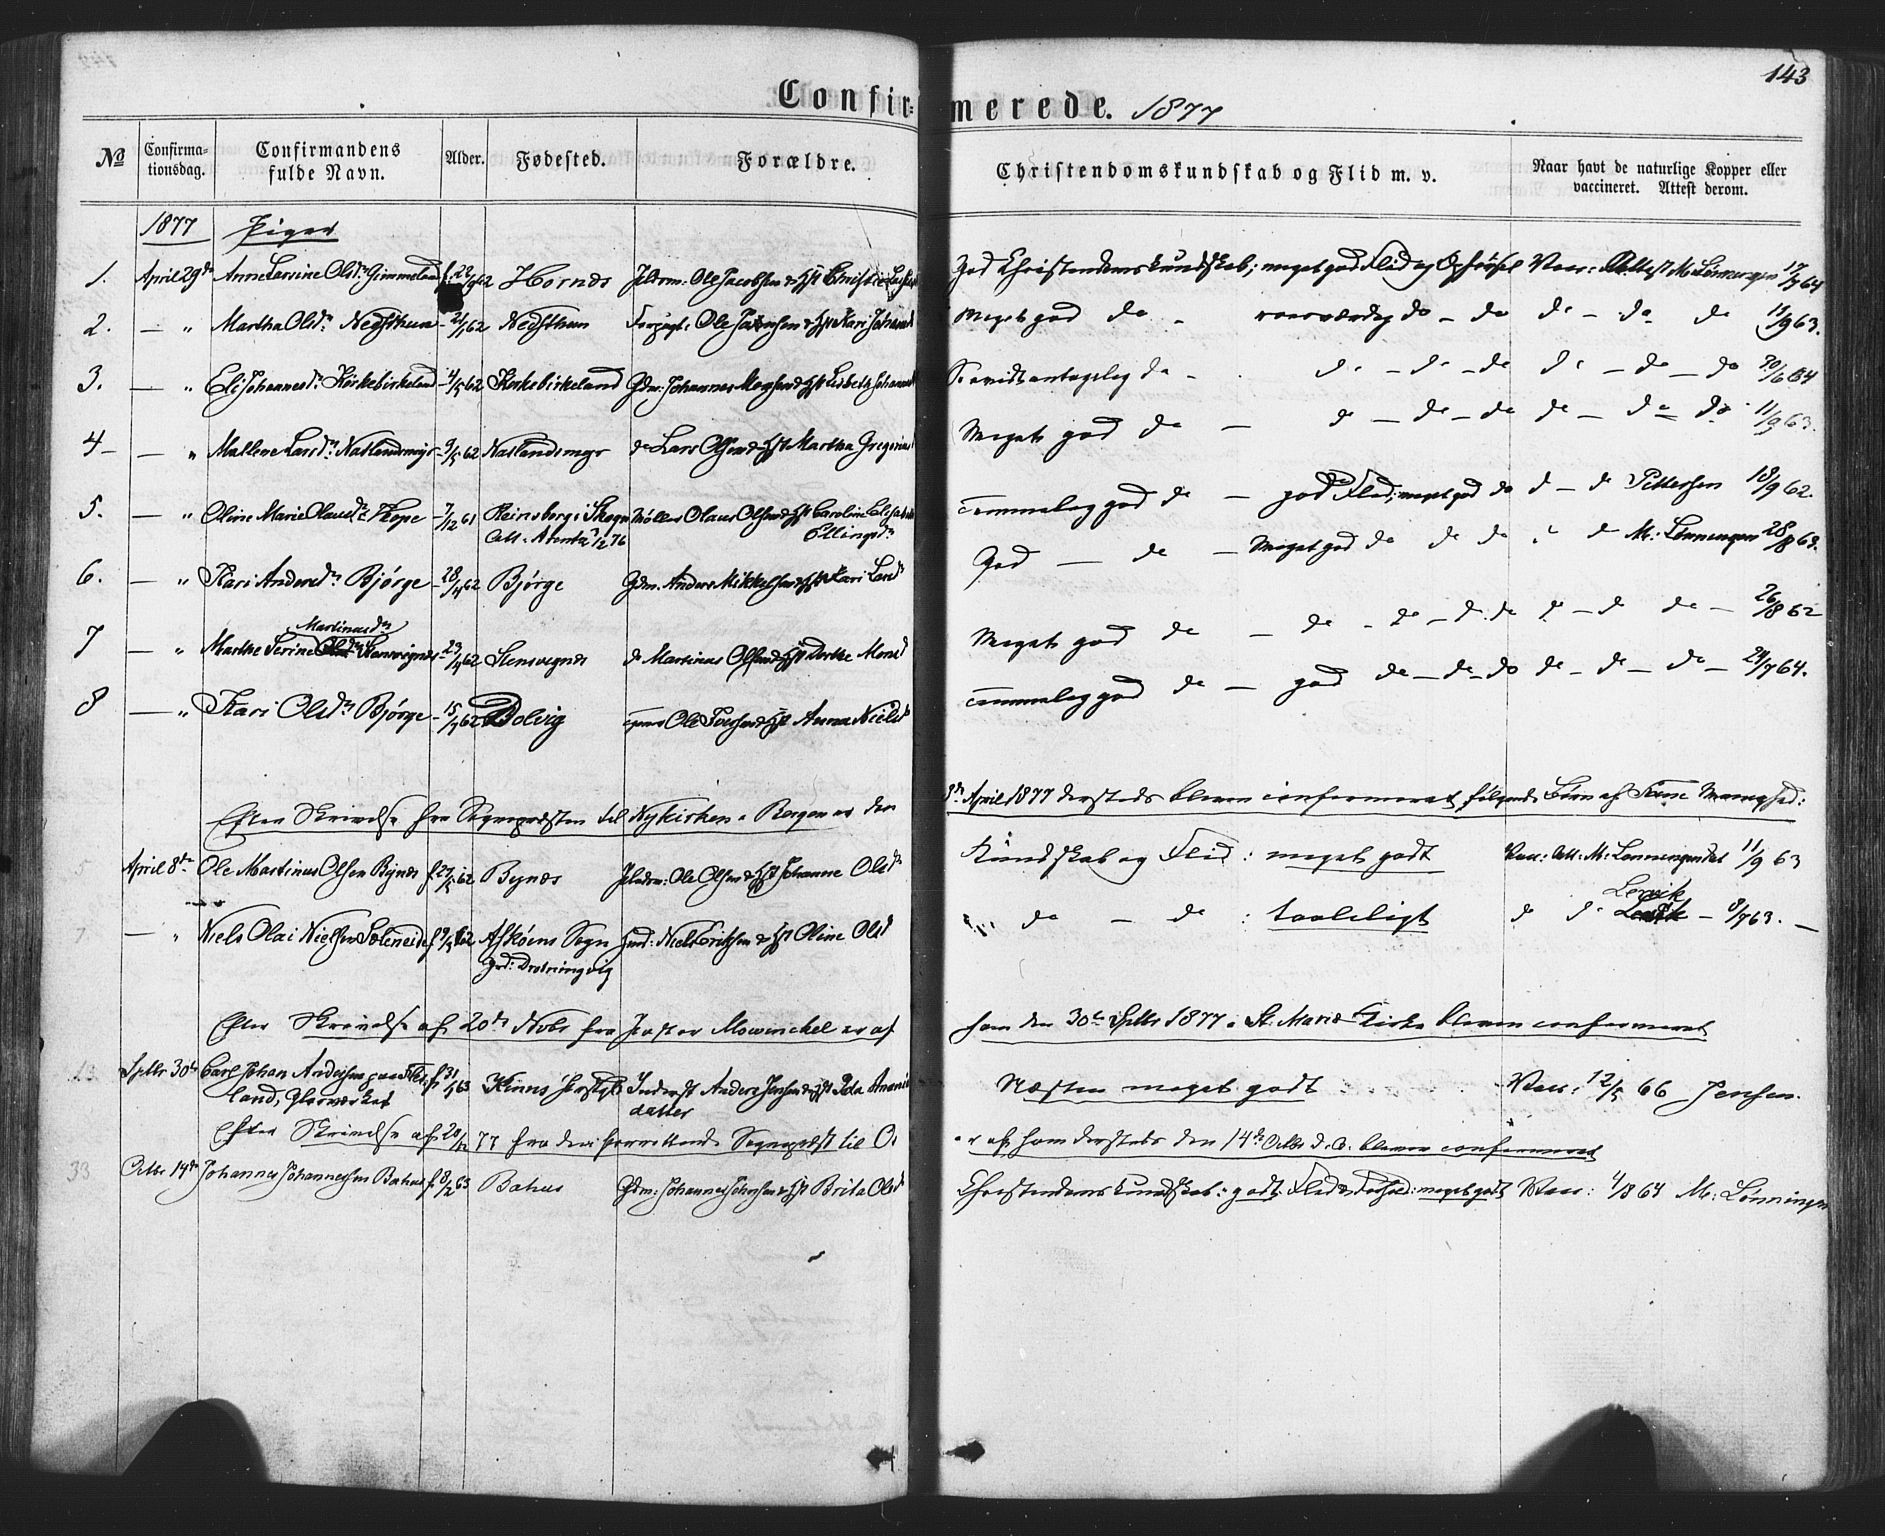 143
Confir-merede. 1877
No Confirma-tionsdag. Confirmandens fulde Navn. Alder. Fødested. Forældre. Christendomskundskab og Flid m. v. Naar havt de naturlige Kopper eller vaccineret. Attest derom.
1877 Piger
1. April 29de Anne Larsine Olsdr. Gimmeland f. 22/9 62 Hornes Jeldsm: Ole Jacobsen & Hst Christie God Christendomskundskab; meget god Flid og Opførsel Vacc: Attest M. Lønningen 17/7 64
2. — " Martha Olsdr. Nedsthun - 21/1 62 Nedsthun Ole & Hst Kari Johannesd Meget god do - roesværdig do - do do - do do 11/9 63.
3. — " Eli Johannesdr. Kirkebirkeland - 4/5 62 Kirkebirkeland Gdm: Johannes Mogensen & Hst Lisbeth Johannesd do - do - do - do do - do - do 30/6 64
4 - — " Mallene Larsdr. Natlandsmyr - 9/5 62 Natlandsmyr do Lars Olsen & Hst Martha Gregoriusd Meget god do - do - do - do do - do do 11/9 63.
5. — " Oline Marie Olausdr. Hope - 7/12 61 Reinsborg i Skogn Møller Olaus Olsen & Hst Caroline Elisabeth Ellingsdr. temmelig god do - god Flid; meget god do d - do Pettersen 18/9 62.
Att. 1/2 76
6. — " Kari Andersdr. Bjørge - 28/4 62 Bjørge Gdm. Anders Mikkelsen & Hst Kari Larsdr God — do - Meget god do do do do M: Lønningen 28/8 63.
7 — " Marthe Serine Martinusdr. Stensvignes - 23/9 62 Stensvignes do Martinus Olsen & Hst Dorthe Monsd Meget god do — do - do - do do - do do - 26/8 62
8 — " Kari Olsdr. Bjørge - 15/7 62 Bolvig Ole Iversen & Hst Anna Nielsdr temmelig god do — god do - do - do do - do - do - 24/7 64.
Efter Skrivelse fra Sognepræsten til Nykirken i Bergen er den 8de April 1877 dersteds bleven confirmeret følgende Børn af Fane Menighed:
5 April 8de Ole Martinus Olsen Bynes f. 27/5 62 Bynes Jeldsm: Ole Olsen & Hst Johanne Olsdr Kundskab og Flid: meget godt Vacc: Att: M: Lønningendat 11/9 63
7 — " Niels Olai Nielsen Søleneide f. 9/5 62 Askøens Sogn Gmd: Niels Eriksen & Hst Oline Olsd do — do : taaleligt do do Lervik - 9/7 63. —
Grd: Drotningvig
Efter Skrivelse af 20de Nvbr fra Pastor Mowinckel er af ham den 30te Sptbr 1877 i St. Mariæ Kirke bleven confirmeret
13 Sptbr 30te Carl Johan Andersen paa land, Glasværket f. 31/5 63 Kinns Prstgld Inderst Anders Jensen & Hst Ida datter Næsten meget godt Vacc: 12/5 66 Jensen.
Efter Skrivelse af 20/12 77 fra den forrettende Sognepræst til er af ham dersteds den 14de Octbr d. A. bleven confirmeret
33 Octbr 14de Johannes Johannessen Bahus f. 8/2 63 Bahus Gdm: Johannes Johnsen & Hst Brita Olsd Christendomskundskab: godt. Flid & Forhold: meget godt Vacc: 4/8 64 M: Lønningen